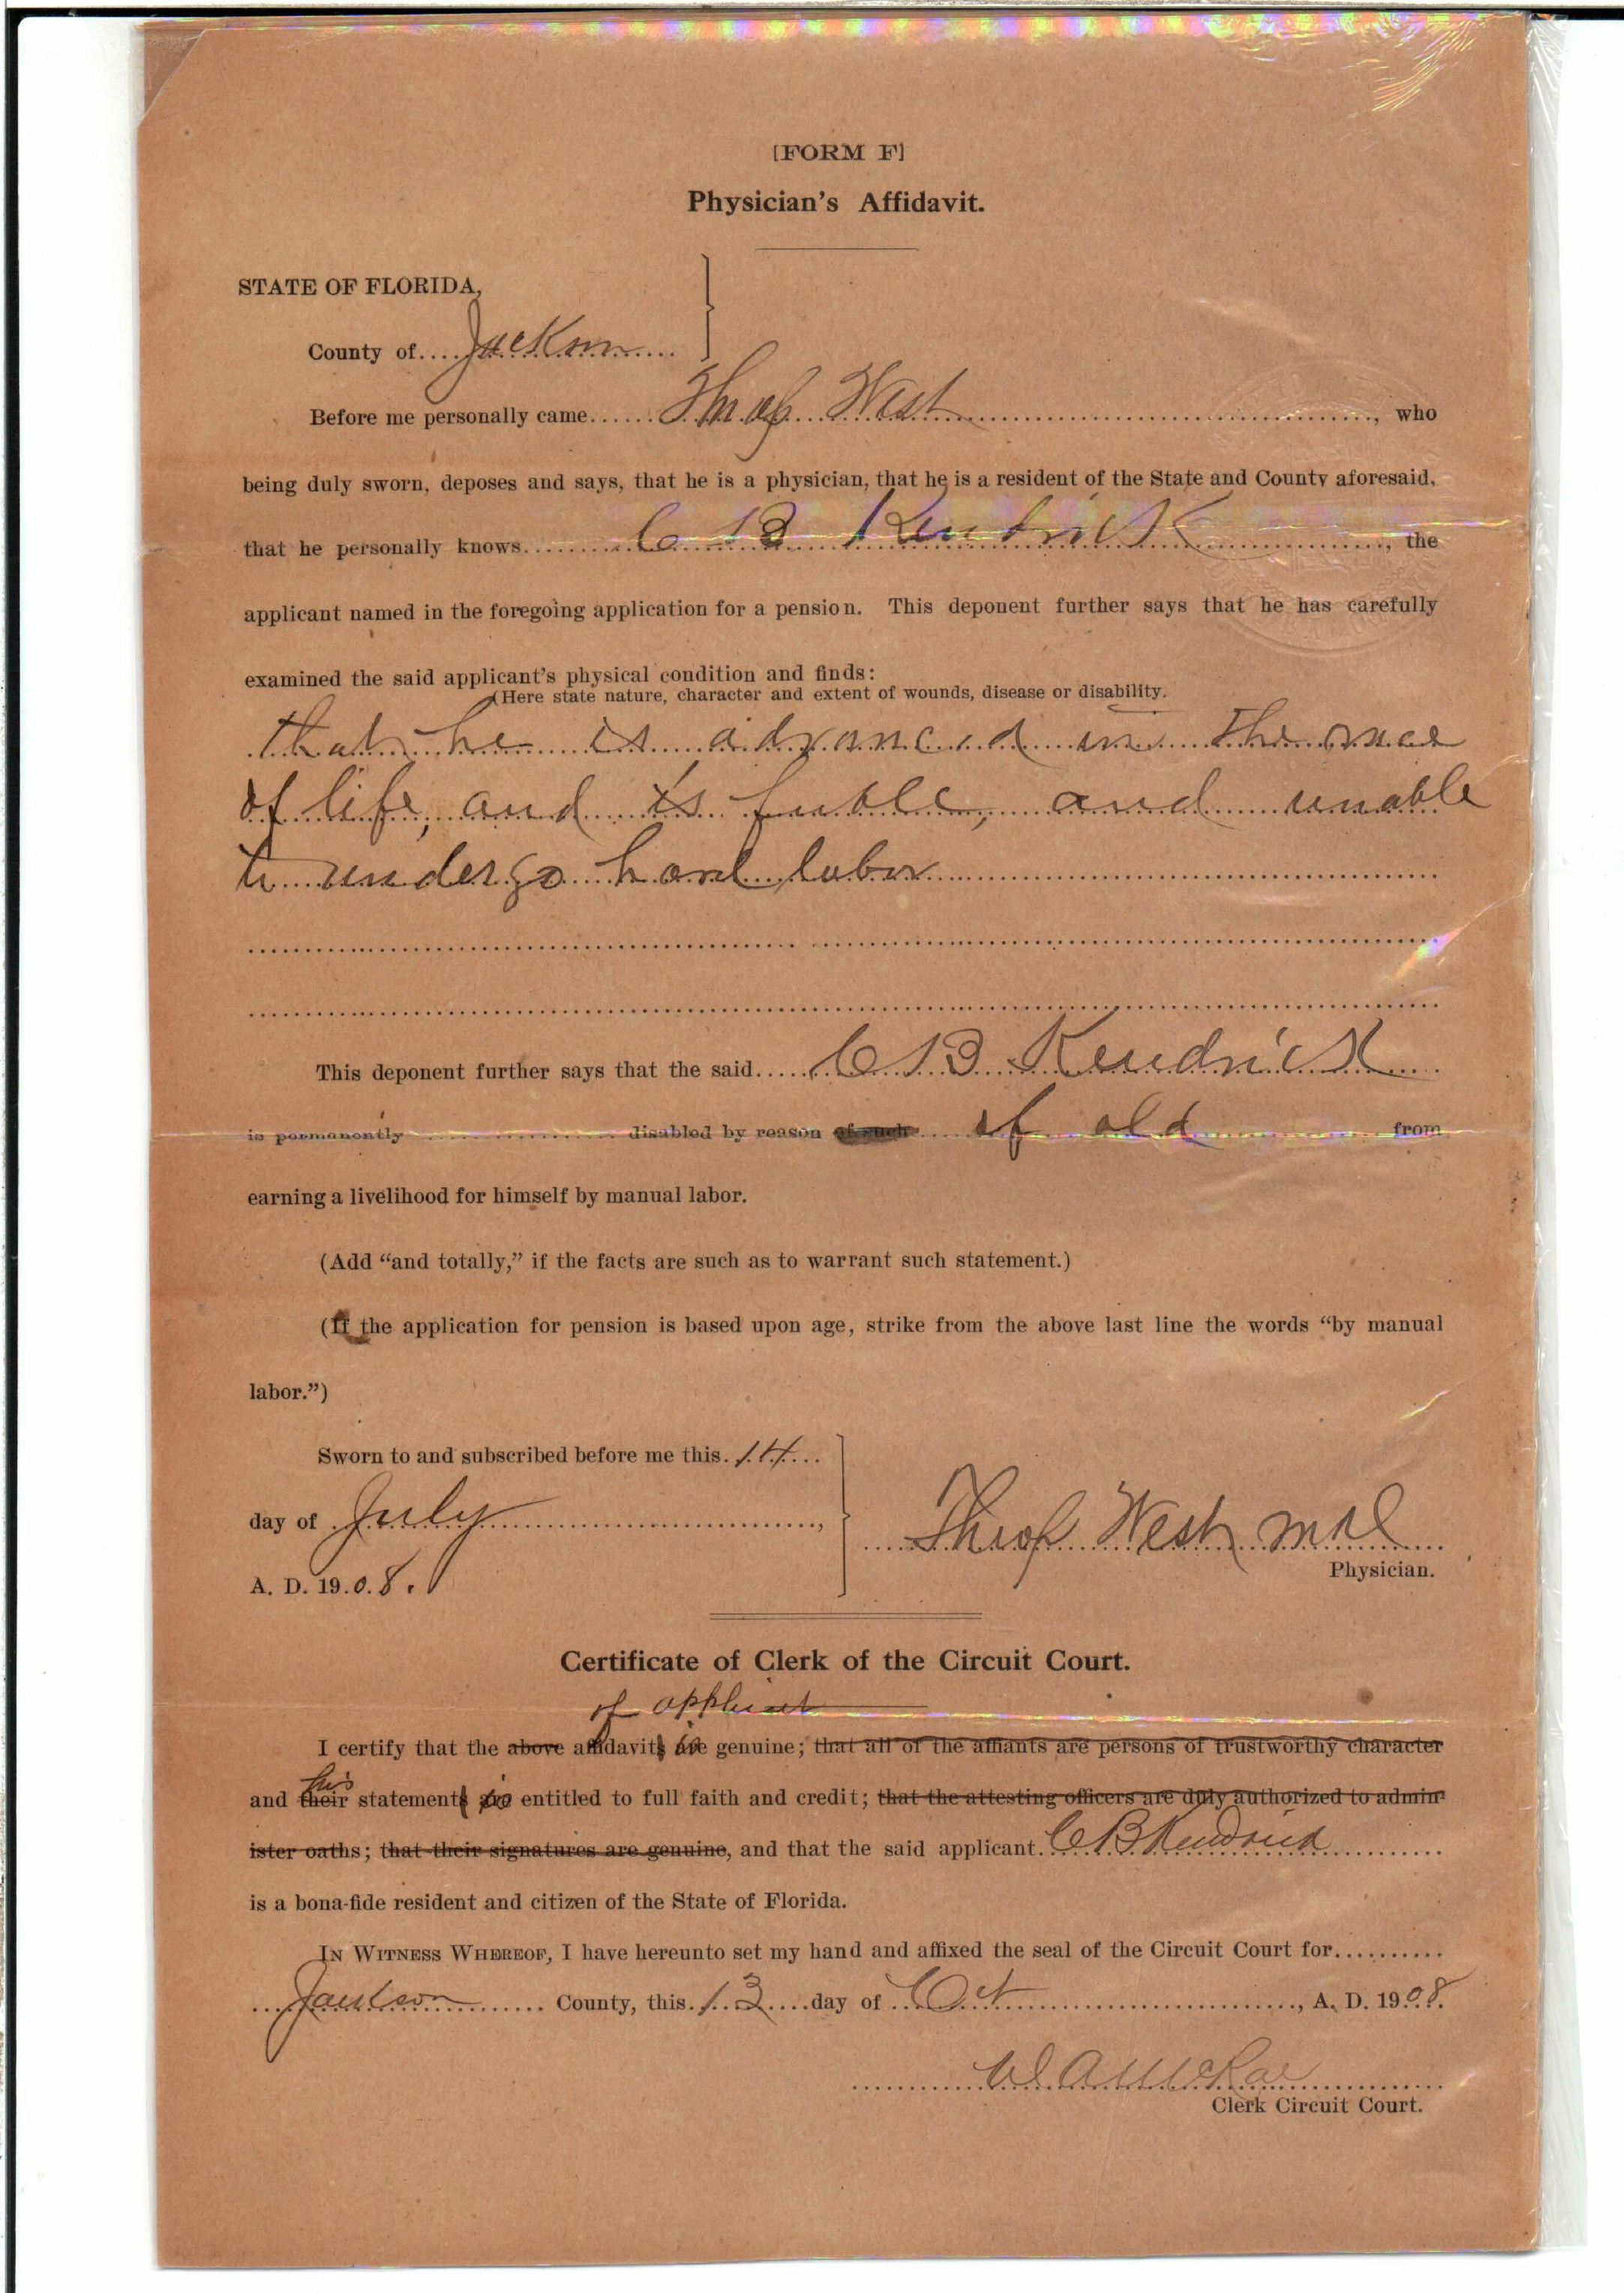 [FORM F]
Physician's Affidavit.
STATE OF FLORIDA,
County of.... Jackson ....
Before me personally came...... Theop West ......, who
being duly sworn, deposes and says, that he is a physician, that he is a resident of the State and County aforesaid,
that he personally knows...... C B Kendrick ......, the
applicant named in the foregoing application for a pension. This deponent further says that he has carefully
examined the said applicant's physical condition and finds:
(Here state nature, character and extent of wounds, disease or disability.
that he is advanced in the
of life, and is feeble, and unable
to undergo hard labor
This deponent further says that the said..... C B Kendrick .....
is permanently ...... disabled by reason of such ... of old ...... from
earning a livelihood for himself by manual labor.
(Add “and totally,” if the facts are such as to warrant such statement.)
(If the application for pension is based upon age, strike from the above last line the words “by manual
labor.”)
Sworn to and subscribed before me this. 14 ...
day of July ......,
A. D. 1908.
Theop West M D
Physician.
Certificate of Clerk of the Circuit Court.
of applicant
I certify that the above affidavits are is genuine; that all of the affiants are persons of trustworthy character
his
and their statements are is entitled to full faith and credit; that the attesting officers are duly authorized to admin-
ister oaths; that their signatures are genuine, and that the said applicant. C B Kendrick ......
is a bona-fide resident and citizen of the State of Florida.
IN WITNESS WHEREOF, I have hereunto set my hand and affixed the seal of the Circuit Court for..........
... Jackson ...... County, this. 13 .... day of .. Oct ......, A. D. 1908.
Clerk Circuit Court.